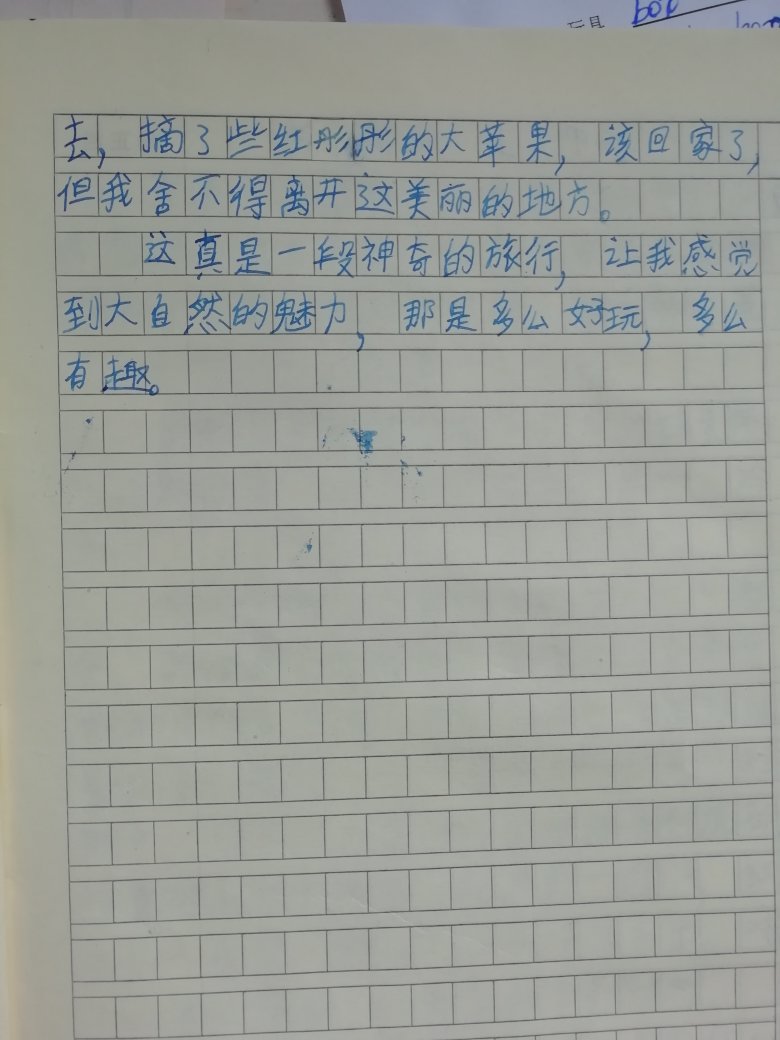 玩具
去，摘了些红彤彤的大苹果，该回家了，
但我舍不得离开这美丽的地方。
这真是一段神奇的旅行，让我感觉
到大自然的魅力，那是多么好玩，多么
有趣。